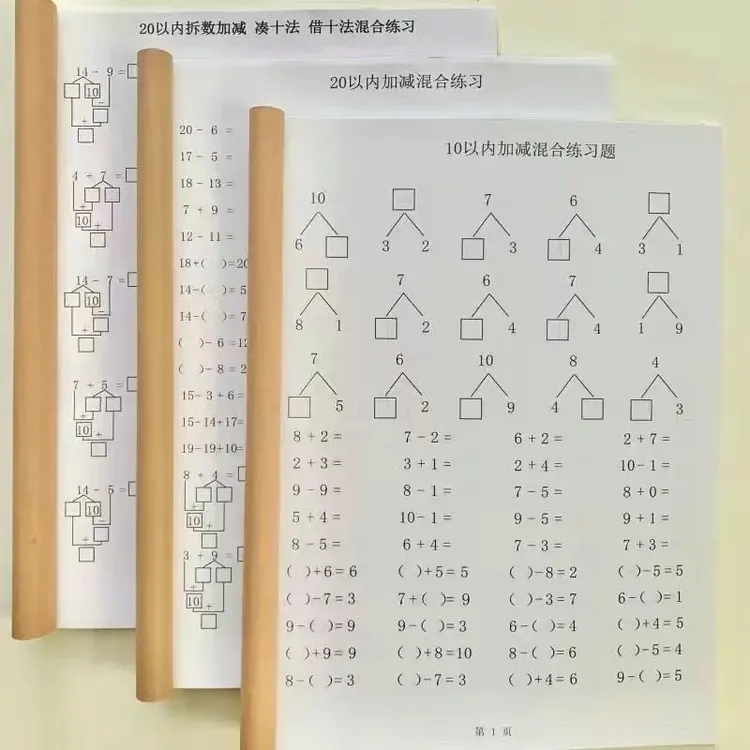 20以内拆数加减 凑十法 借十法混合练习
14 - 9 = □
□ 10
-
□
+
□
4 + 7 = □
□ □
+
10
+
□
14 - 7 = □
□ 10
-
□
+
□
7 + 5 = □
□ □
+
10
+
□
14 - 5 = □
□ 10
-
□
+
□
20以内加减混合练习
20 - 6 =
17 - 5 =
18 - 13 =
7 + 9 =
12 - 11 =
18+( )=20
14-( )= 5
14-( )= 7
( )- 6 = 12
( )- 8 = 2
15- 3 + 6 =
15-14+17=
19-19+10=
8 + 4 = □
□ □
+
10
+
□
3 + 9 = □
□ □
+
10
+
□
10以内加减混合练习题
10 □ 7 6 □
6 □ 3 2 □ 3 □ 4 3 1
□ 7 6 7 □
8 1 □ 2 □ 4 □ 4 1 9
7 6 10 8 4
□ 5 □ 2 □ 9 4 □ □ 3
8 + 2 = 7 - 2 = 6 + 2 = 2 + 7 =
2 + 3 = 3 + 1 = 2 + 4 = 10- 1 =
9 - 9 = 8 - 1 = 7 - 5 = 8 + 0 =
5 + 4 = 10- 1 = 9 - 5 = 9 + 1 =
8 - 5 = 6 + 4 = 7 - 3 = 7 + 3 =
( )+6 = 6 ( )+5 = 5 ( )-8 = 2 ( )-5 = 5
( )-7 = 3 7+( )= 9 ( )-3 = 7 6-( )= 1
9-( )= 9 9-( )= 3 6-( )= 4 ( )+4 = 5
( )+9 = 9 ( )+8 = 10 8-( )= 6 ( )-5 = 4
8-( )= 3 ( )-7 = 3 ( )+4 = 6 9-( )= 5
第 1 页